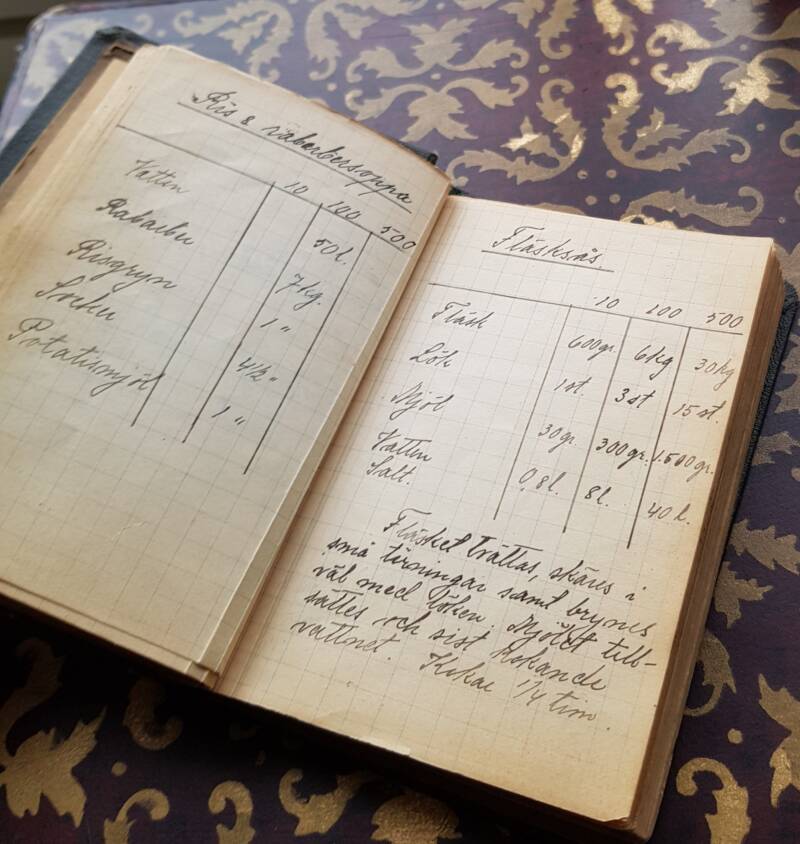 Ris & rabarbersoppa
10 100 500
Vatten 50 l.
Rabarber 7 kg.
Risgryn 1 "
Socker 4 1/2 "
Potatismjöl 1 "
Fläsksås.
10 100 500
Fläsk 600 gr. 6 kg 30 kg
Lök 1 st. 3 st 15 st.
Mjöl 30 gr. 300 gr. 1.500 gr.
Vatten 0,8 l. 8 l. 40 l.
Salt.
Fläsket tvättas, skäres i
små tärningar samt brynes
väl med löken. Mjölet till-
sättes och sist kokande
vattnet. Kokar 1/4 tim.